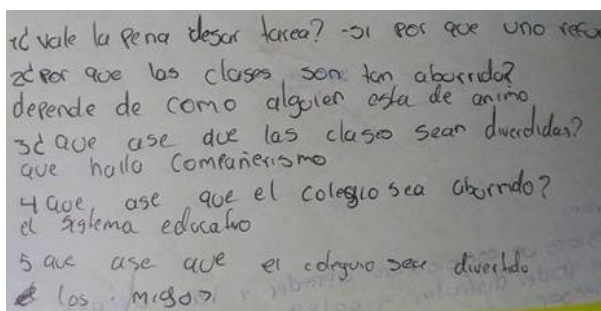 1¿ vale la pena desar tarea? -si por que uno refu
2¿ por que las clases son tan aburrida?
depende de como alguien esta de animo
3¿ que ase que las clases sean diverdidas?
que halla compañerismo
4 que ase que el colegio sea aburrido?
el sistema educativo
5 que ase que el colegio sea divertido
los migos